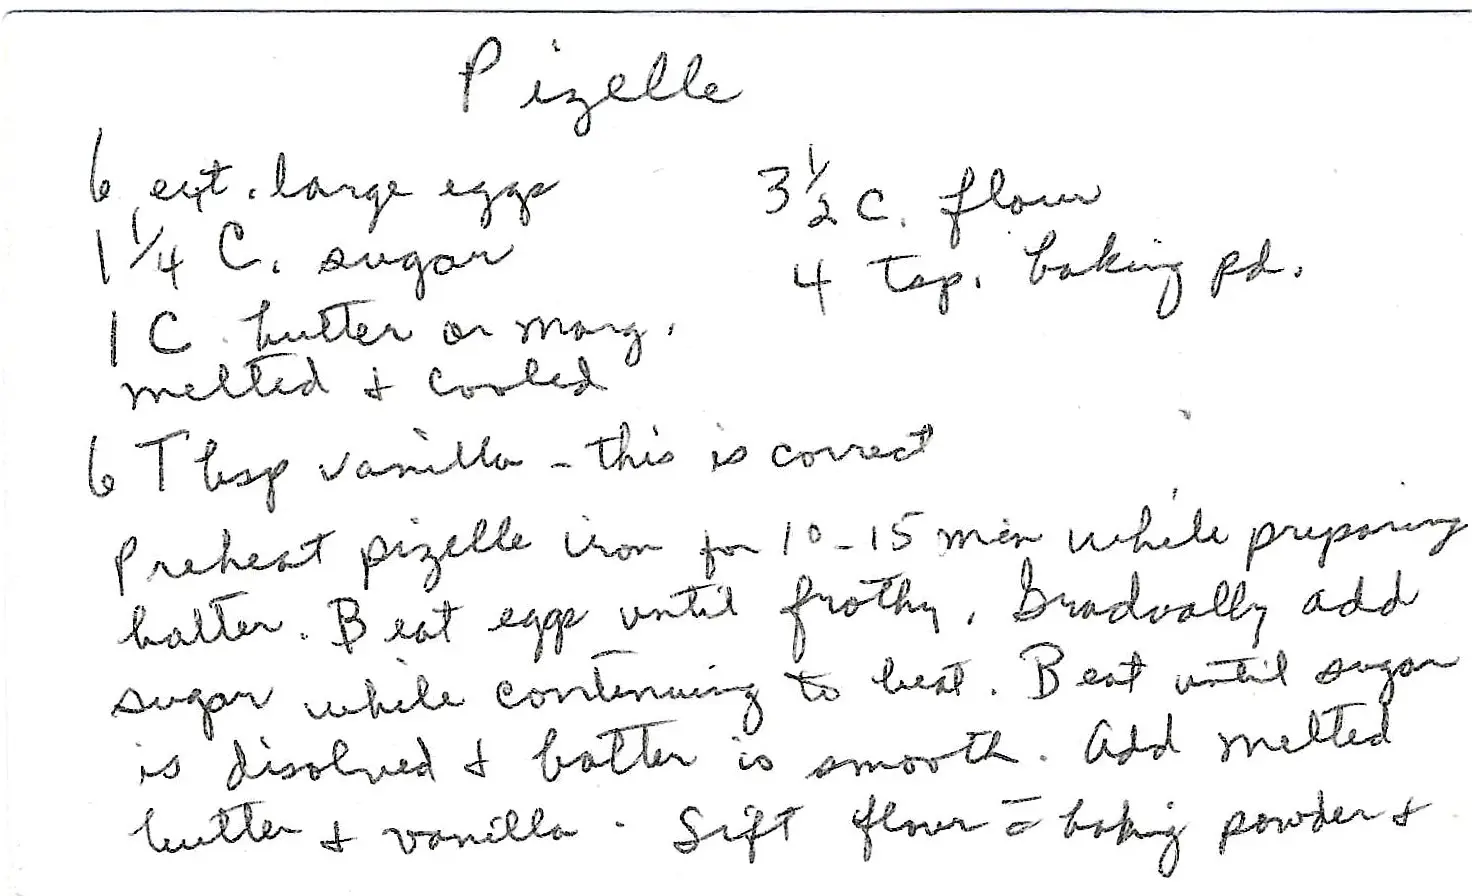 Pizelle
6 ext. large eggs
1 1/4 C. sugar
1 C. butter or marg.
melted & cooled
6 Tbsp vanilla - this is correct
3 1/2 C. flour
4 Tsp. baking pd.
Preheat pizelle iron for 10-15 min while preparing
batter. Beat eggs until frothy. Gradually add
sugar while continuing to beat. Beat until sugar
is disolved & batter is smooth. Add melted
butter & vanilla. Sift flour c̄ baking powder &